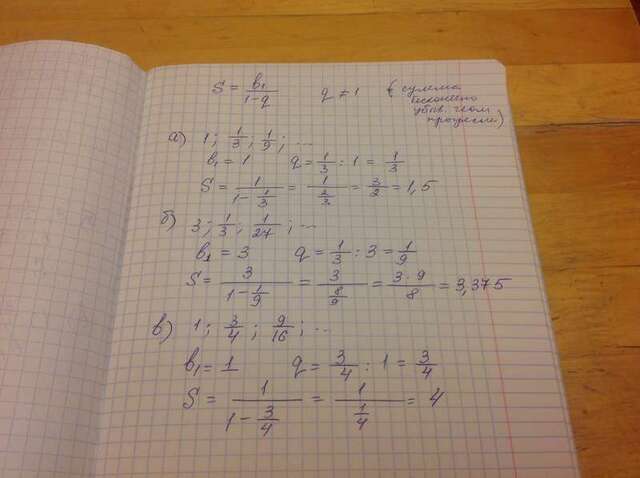 S = b₁/(1-q)   q ≠ 1   (сумма
бесконечно
убыв. геом
прогрессии)
а) 1; 1/3; 1/9; ...
b₁ = 1   q = 1/3 : 1 = 1/3
S = 1/(1 - 1/3) = 1/(2/3) = 3/2 = 1,5
б) 3; 1/3; 1/27; ...
b₁ = 3   q = 1/3 : 3 = 1/9
S = 3/(1 - 1/9) = 3/(8/9) = (3·9)/8 = 3,375
в) 1; 3/4; 9/16; ...
b₁ = 1   q = 3/4 : 1 = 3/4
S = 1/(1 - 3/4) = 1/(1/4) = 4